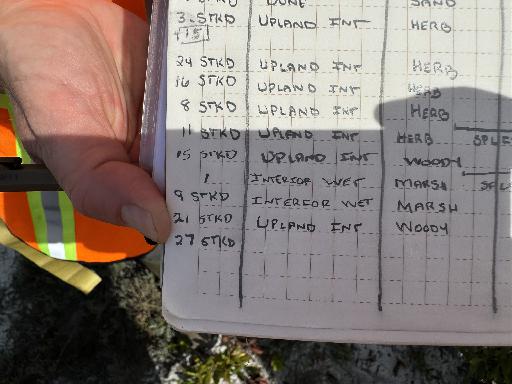 DUNE SAND
3 STKD UPLAND INT HERB
+15
24 STKD UPLAND INT HERB
16 STKD UPLAND INT HERB
8 STKD UPLAND INT HERB
11 STKD UPLAND INT HERB SPLE
15 STKD UPLAND INT WOODY
1 INTERIOR WET MARSH SPL
9 STKD INTERIOR WET MARSH
21 STKD UPLAND INT WOODY
27 STKD